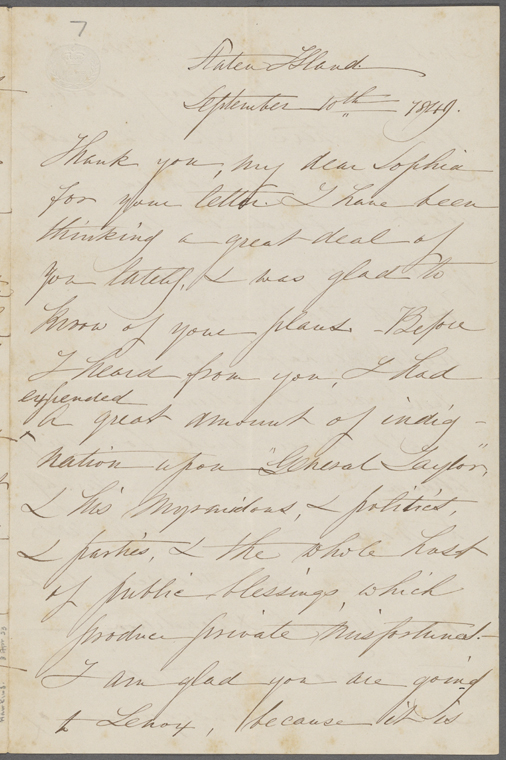 7
Staten Island
September 10th 1849.
Thank you, my dear Sophia
for your letter. I have been
thinking a great deal of
you lately, & was glad to
know of your plans. - Before
I heard from you, I had
expended
a great amount of indig-
nation upon "General Taylor",
& his Myrmidons, & politics,
& parties, & the whole host
of public blessings, which
produce private misfortunes.-
I am glad you are going
to Lenox, because it is